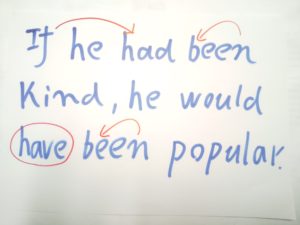 If he had been
Kind, he would
have been popular.